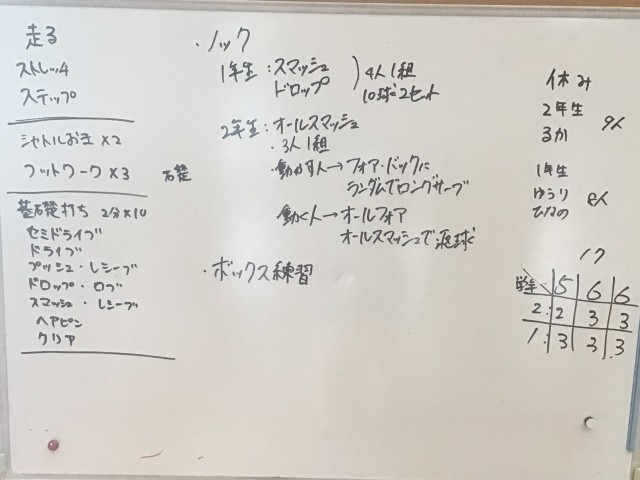 走る
ストレッチ
ステップ
シャトルおき×2
フットワーク×3
基礎打ち 2分×10
セミドライブ
ドライブ
プッシュ・レシーブ
ドロップ・ロブ
スマッシュ・レシーブ
ヘアピン
クリア
・ノック
1年生:スマッシュ
ドロップ
4人1組
10球2セット
2年生:オールスマッシュ
・3人1組
・動かす人→フォア・バックに
ランダムでロングサーブ
動く人→オールフォア
オールスマッシュで返球
・ボックス練習
休み
2年生
るか
9人
1年生
ゆうり
ひなの
8人
17
5 6 6
2: 2 3 3
1: 3 3 3